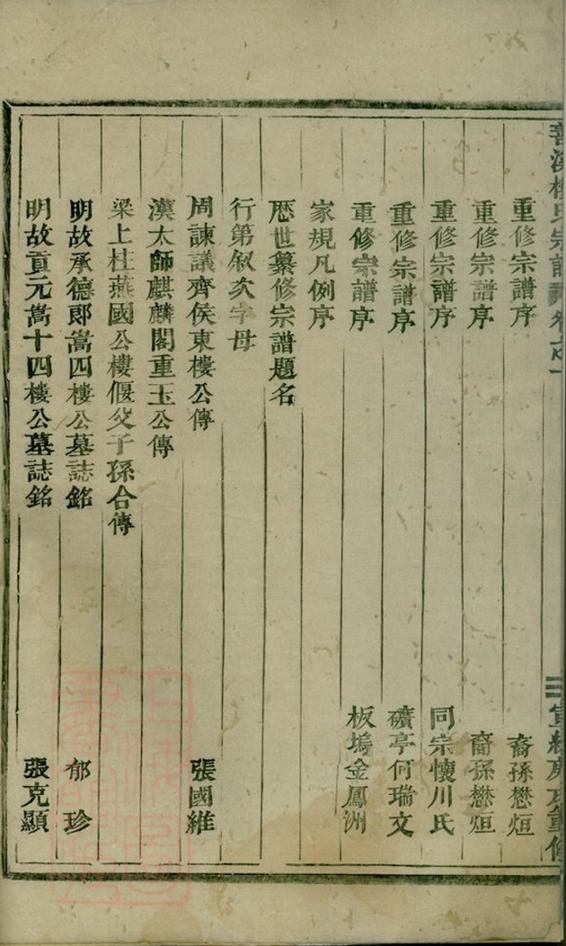 樓氏宗譜 卷之一
三 宣統庚戌重修
重修宗譜序 裔孫懋烜
重修宗譜序 裔孫懋烜
重修宗譜序 同宗懷川氏
重修宗譜序 礦亭何瑞文
重修宗譜序 板塢金鳳洲
家規凡例序
歷世纂修宗譜題名
行第敘次字母
周諫議齊侯東樓公傳 張國維
漢太師麒麟閣重玉公傳
梁上柱燕國公樓偃父子孫合傳
明故承德郎嵩四樓公墓誌銘 郁珍
明故貢元嵩十四樓公墓誌銘 張克顯